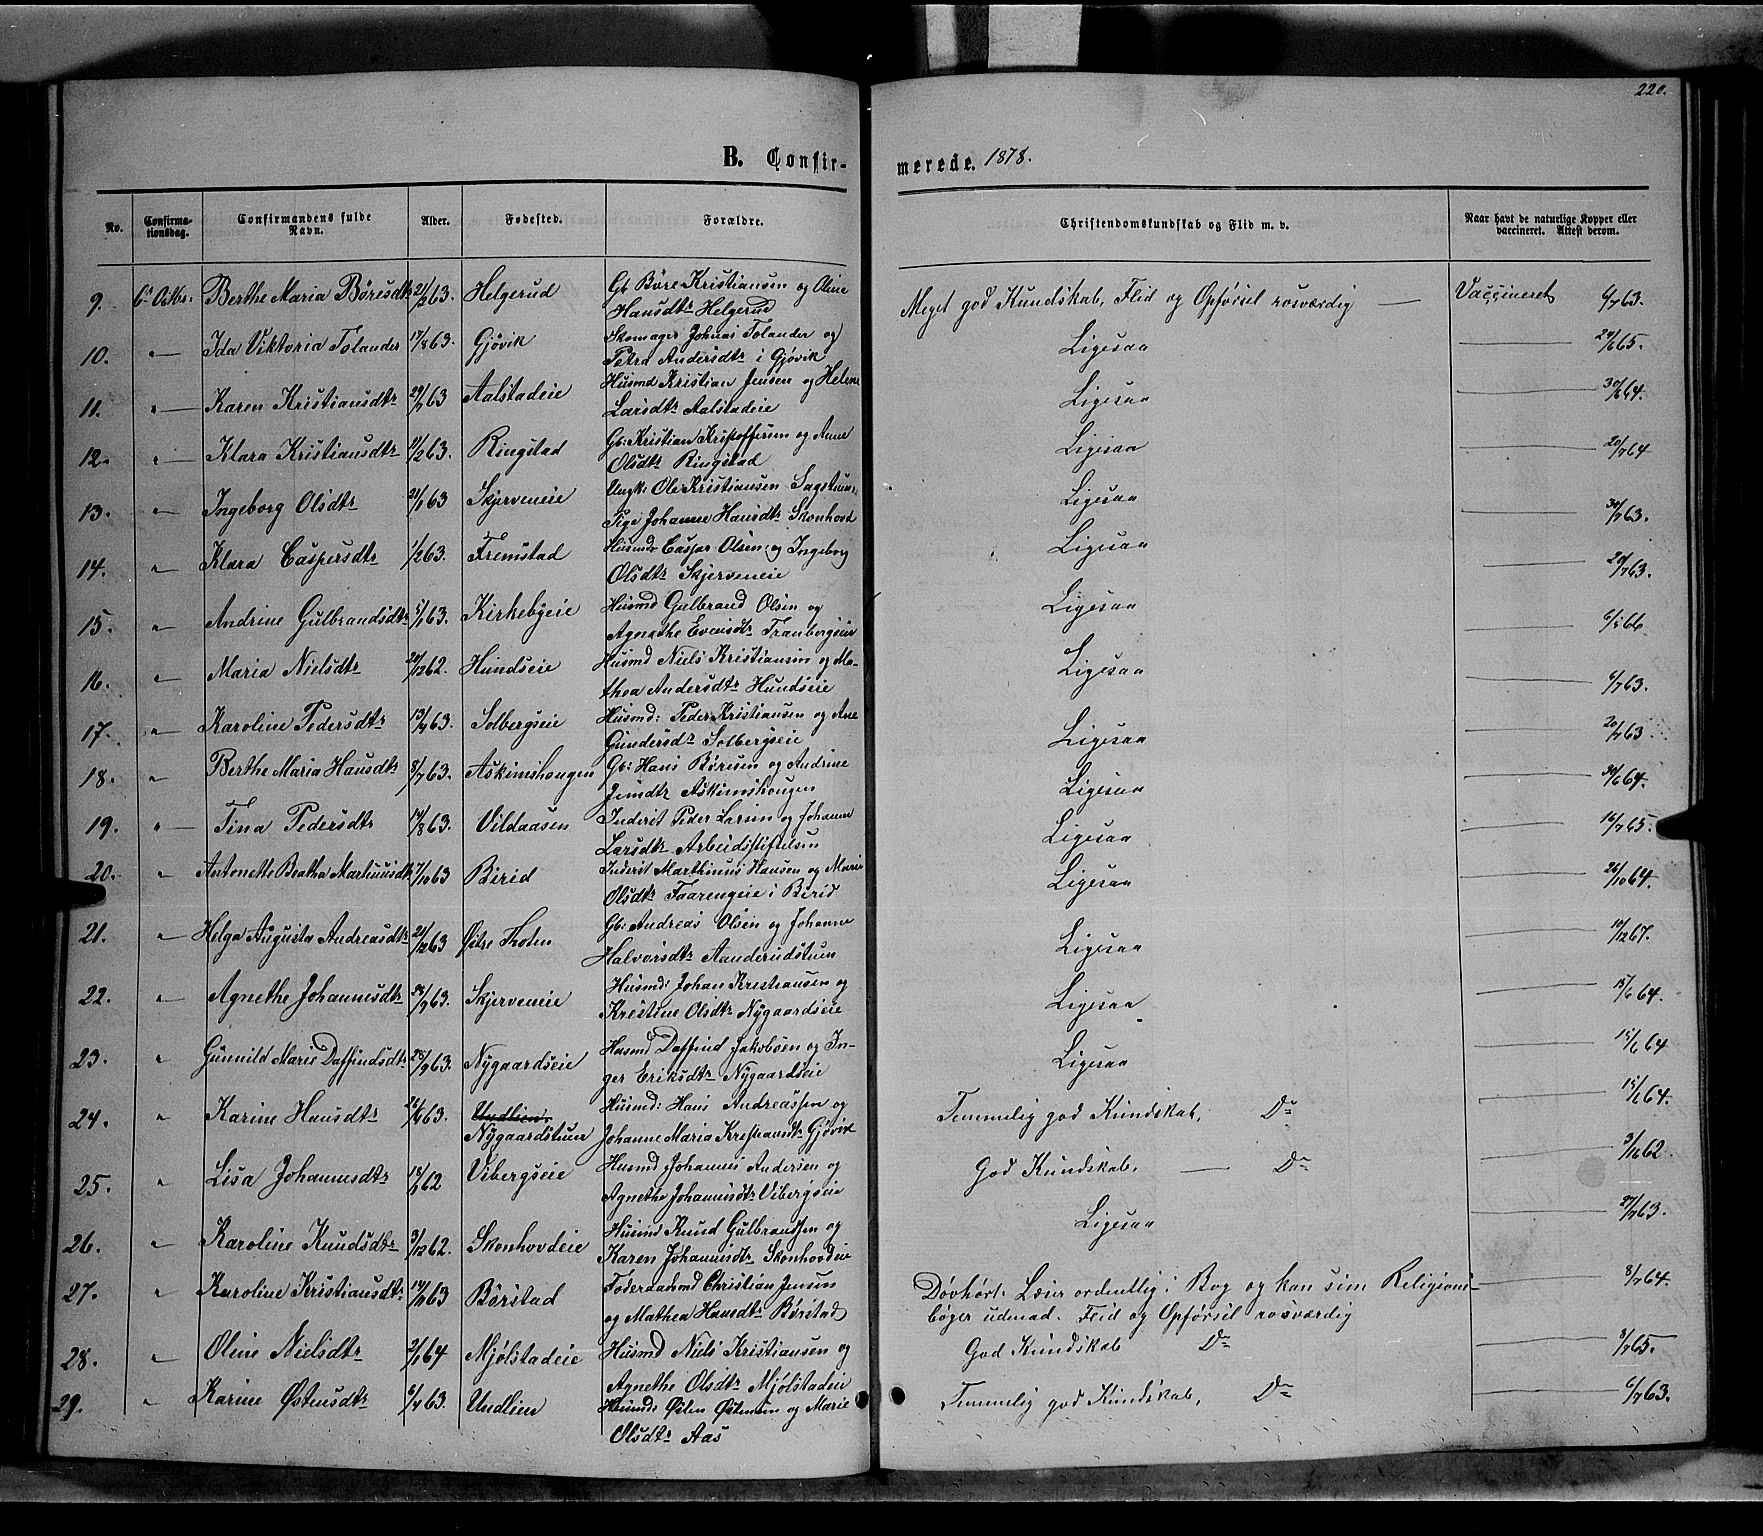 220.
B. Confir-
merede. 1878.
No.
Confirma-
tionsdag.
Confirmandens fulde
Navn.
Alder.
Fødested.
Forældre.
Christendomskundskab og Flid m. v.
Naar havt de naturlige Kopper eller
vaccineret. Attest derom.
9. 6te Octbr: Berthe Maria Børesdtr 21/2 63. Helgerud Gb Børe Kristiansen og Oline
Hansdtr Helgerud Meget god Kundskab, Flid og Opførsel rosværdig — Vaccineret 6/7 63.
10. " Ida Viktoria Tolander 17/8 63. Gjøvik Skomager Johnas Tolander og
Petra Andersdtr i Gjøvik Ligesaa 24/6 65.
11. " Karen Kristiansdtr Aalstadeie Husmd Kristian Jensen og Helene
Larsdtr Aalstadeie Ligesaa 30/6 64.
12. " Klara Kristiansdtr 21/2 63. Ringstad Gb: Kristian Kristoffersen og Anne
Olsdtr Ringstad Ligesaa 20/7 64
13. " Ingeborg Olsdtr Skjerveneie Ungk: Ole Kristiansen Sagstuen
Pige Johanne Hansdtr Skonhovd Ligesaa 30/7 63.
14. " Klara Caspersdtr 1/2 63. Fremstad Husmd Caspar Olsen og Ingeborg
Olsdtr Skjerveneie Ligesaa 20/7 63.
15. " Andrine Gulbrandsdtr Kirkebyeie Husmd Gulbrand Olsen og
Agnethe Evensdtr Tranbergseie Ligesaa
16. " Maria Nielsdtr 20/12 62. Hundseie Husmd Niels Kristiansen og Ma-
thea Andersdtr Hundseie Ligesaa 6/7 63.
17. " Karoline Pedersdtr 13/4 63. Solbergseie Husmd: Peder Kristiansen og Ane
Gundersdtr Solbergseie Ligesaa 20/7 63
18. " Berthe Maria Hansdtr 8/7 63. Askimshougen Gb: Hans Børesen og Andrine
Jensdtr Askimshougen Ligesaa 30/6 64.
19. " Tina Pedersdtr 14/8 63. Vildaasen Inderst Peder Larsen og Johanne
Larsdtr Arbeidsstiftelsen Ligesaa 16/7 65.
20. " Antonette Beatha Martinusdtr 17/10 63 Birid Inderst Marthinus Hansen og Marie
Olsdtr Faarengeie i Birid Ligesaa 26/10 64.
21. " Helga Augusta Andreasdtr 21/12 63 Østre Thoten Gb: Andreas Olsen og Johanne
Halvorsdtr Aanderudstuen Ligesaa 10/12 67.
22. " Agnethe Johannesdtr 28/9 63. Skjerveneie Husmd: Johan Kristiansen og
Kristine Olsdtr Nygaardseie Ligesaa 15/6 64.
23. " Gunnild Marie Daffindsdtr 28/9 63. Nygaardseie Husmd Daffind Jakobsen og In-
ger Eriksdtr Nygaardseie Ligesaa 15/6 64
24. " Karine Hansdtr Undlien.
Nygaardstuen Husmd: Hans Andreassen og
Johanne Maria Kristiansdtr Gjøvik Temmelig god Kundskab, Do 15/6 64.
25. " Lisa Johannesdtr Vibergseie Husmd Johannes Andersen og
Agnethe Johannesdtr Vibergseie God Kundskab, — Do
26. " Karoline Knudsdtr 3/12 62. Skonhovdeie Husmd Knud Gulbrandsen og
Karen Johannesdtr Skonhovdeie Ligesaa 27/7 63.
27. " Karoline Kristiansdtr Børstad Føderaadsmd Christian Jensen
og Mathea Hansdtr Børstad Døvhørt. Læser ordentlig i Bog og kan sin Religions-
bøger udenad. Flid og Opførsel rosværdig 8/7 64.
28. " Oline Nielsdtr Mjølstadeie Husmd Niels Kristiansen og
Agnethe Olsdtr Mjølstadeie God Kundskab Do 8/7 65.
29. " Karine Østensdtr 6/4 63. Undlien Husmd: Østen Østensen og Marie
Olsdtr Aas Temmelig god Kundskab, Do 6/7 63.